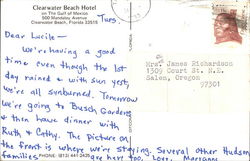 Clearwater Beach Hotel
on The Gulf of Mexico
500 Mandalay Avenue
Clearwater Beach, Florida 33515
Tues.
Dear Lucile—
We're having a good
time even though the 1st
day rained & with sun yest,
we're all sunburned. Tomorrow
we're going to Busch Gardens
& then have dinner with
Ruth & Cathy. The picture on
the front is where we're staying. Several other Hudson
families are here too. Love, Marianne
PHONE: (813) 441-2425
Mrs. James Richardson
1309 Court St. N.E.
Salem, Oregon
97301